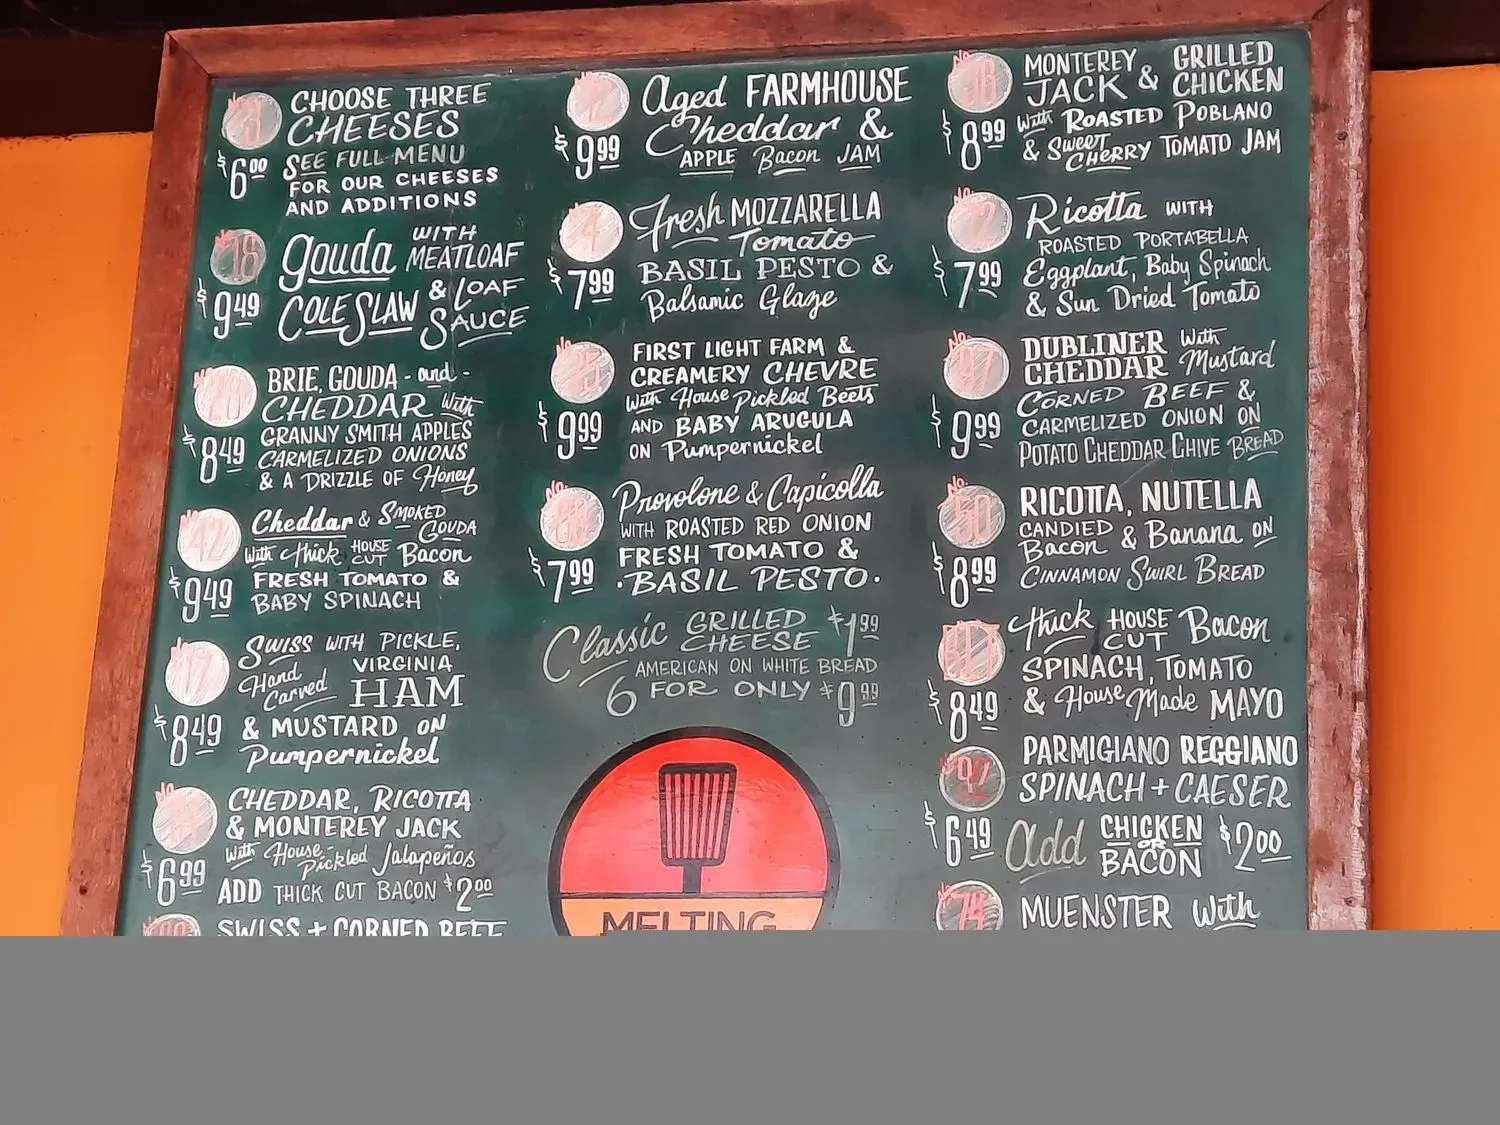 CHOOSE THREE
CHEESES
$6.00
SEE FULL MENU
FOR OUR CHEESES
AND ADDITIONS
No. 18
gouda WITH
MEATLOAF
COLESLAW & LOAF
SAUCE
$9.49
BRIE, GOUDA - and -
CHEDDAR With
GRANNY SMITH APPLES
CARMELIZED ONIONS
& A DRIZZLE OF Honey
$8.49
No. 42
Cheddar & SMOKED
GOUDA
With thick HOUSE CUT Bacon
FRESH TOMATO &
BABY SPINACH
$9.49
17
SWISS WITH PICKLE,
Hand Carved VIRGINIA
HAM
& MUSTARD ON
Pumpernickel
$8.49
CHEDDAR, RICOTTA
& MONTEREY JACK
With House-Pickled Jalapeños
ADD THICK CUT BACON $2.00
$6.99
SWISS + CORNED BEEF
Aged FARMHOUSE
Cheddar &
APPLE Bacon JAM
$9.99
No. 4
Fresh MOZZARELLA
Tomato
BASIL PESTO &
Balsamic Glaze
$7.99
No.
FIRST LIGHT FARM &
CREAMERY CHEVRE
With House Pickled Beets
AND BABY ARUGULA
ON Pumpernickel
$9.99
No.
Provolone & Capicolla
WITH ROASTED RED ONION
FRESH TOMATO &
·BASIL PESTO·
$7.99
Classic GRILLED
CHEESE $1.99
AMERICAN ON WHITE BREAD
6 FOR ONLY $9.99
MELTING
MONTEREY
JACK & GRILLED
CHICKEN
With ROASTED POBLANO
& Sweet CHERRY TOMATO JAM
$8.99
No. 12
Ricotta WITH
ROASTED PORTABELLA
Eggplant, Baby Spinach
& Sun Dried Tomato
$7.99
No. 97
DUBLINER With
CHEDDAR Mustard
CORNED BEEF &
CARMELIZED ONION ON
POTATO CHEDDAR CHIVE BREAD
$9.99
No. 50
RICOTTA, NUTELLA
CANDIED
Bacon & Banana ON
CINNAMON SWIRL BREAD
$8.99
thick HOUSE CUT Bacon
SPINACH, TOMATO
& House Made MAYO
$8.49
No. 92
PARMIGIANO REGGIANO
SPINACH + CAESER
$6.49
add CHICKEN OR BACON $2.00
No. 74
MUENSTER With